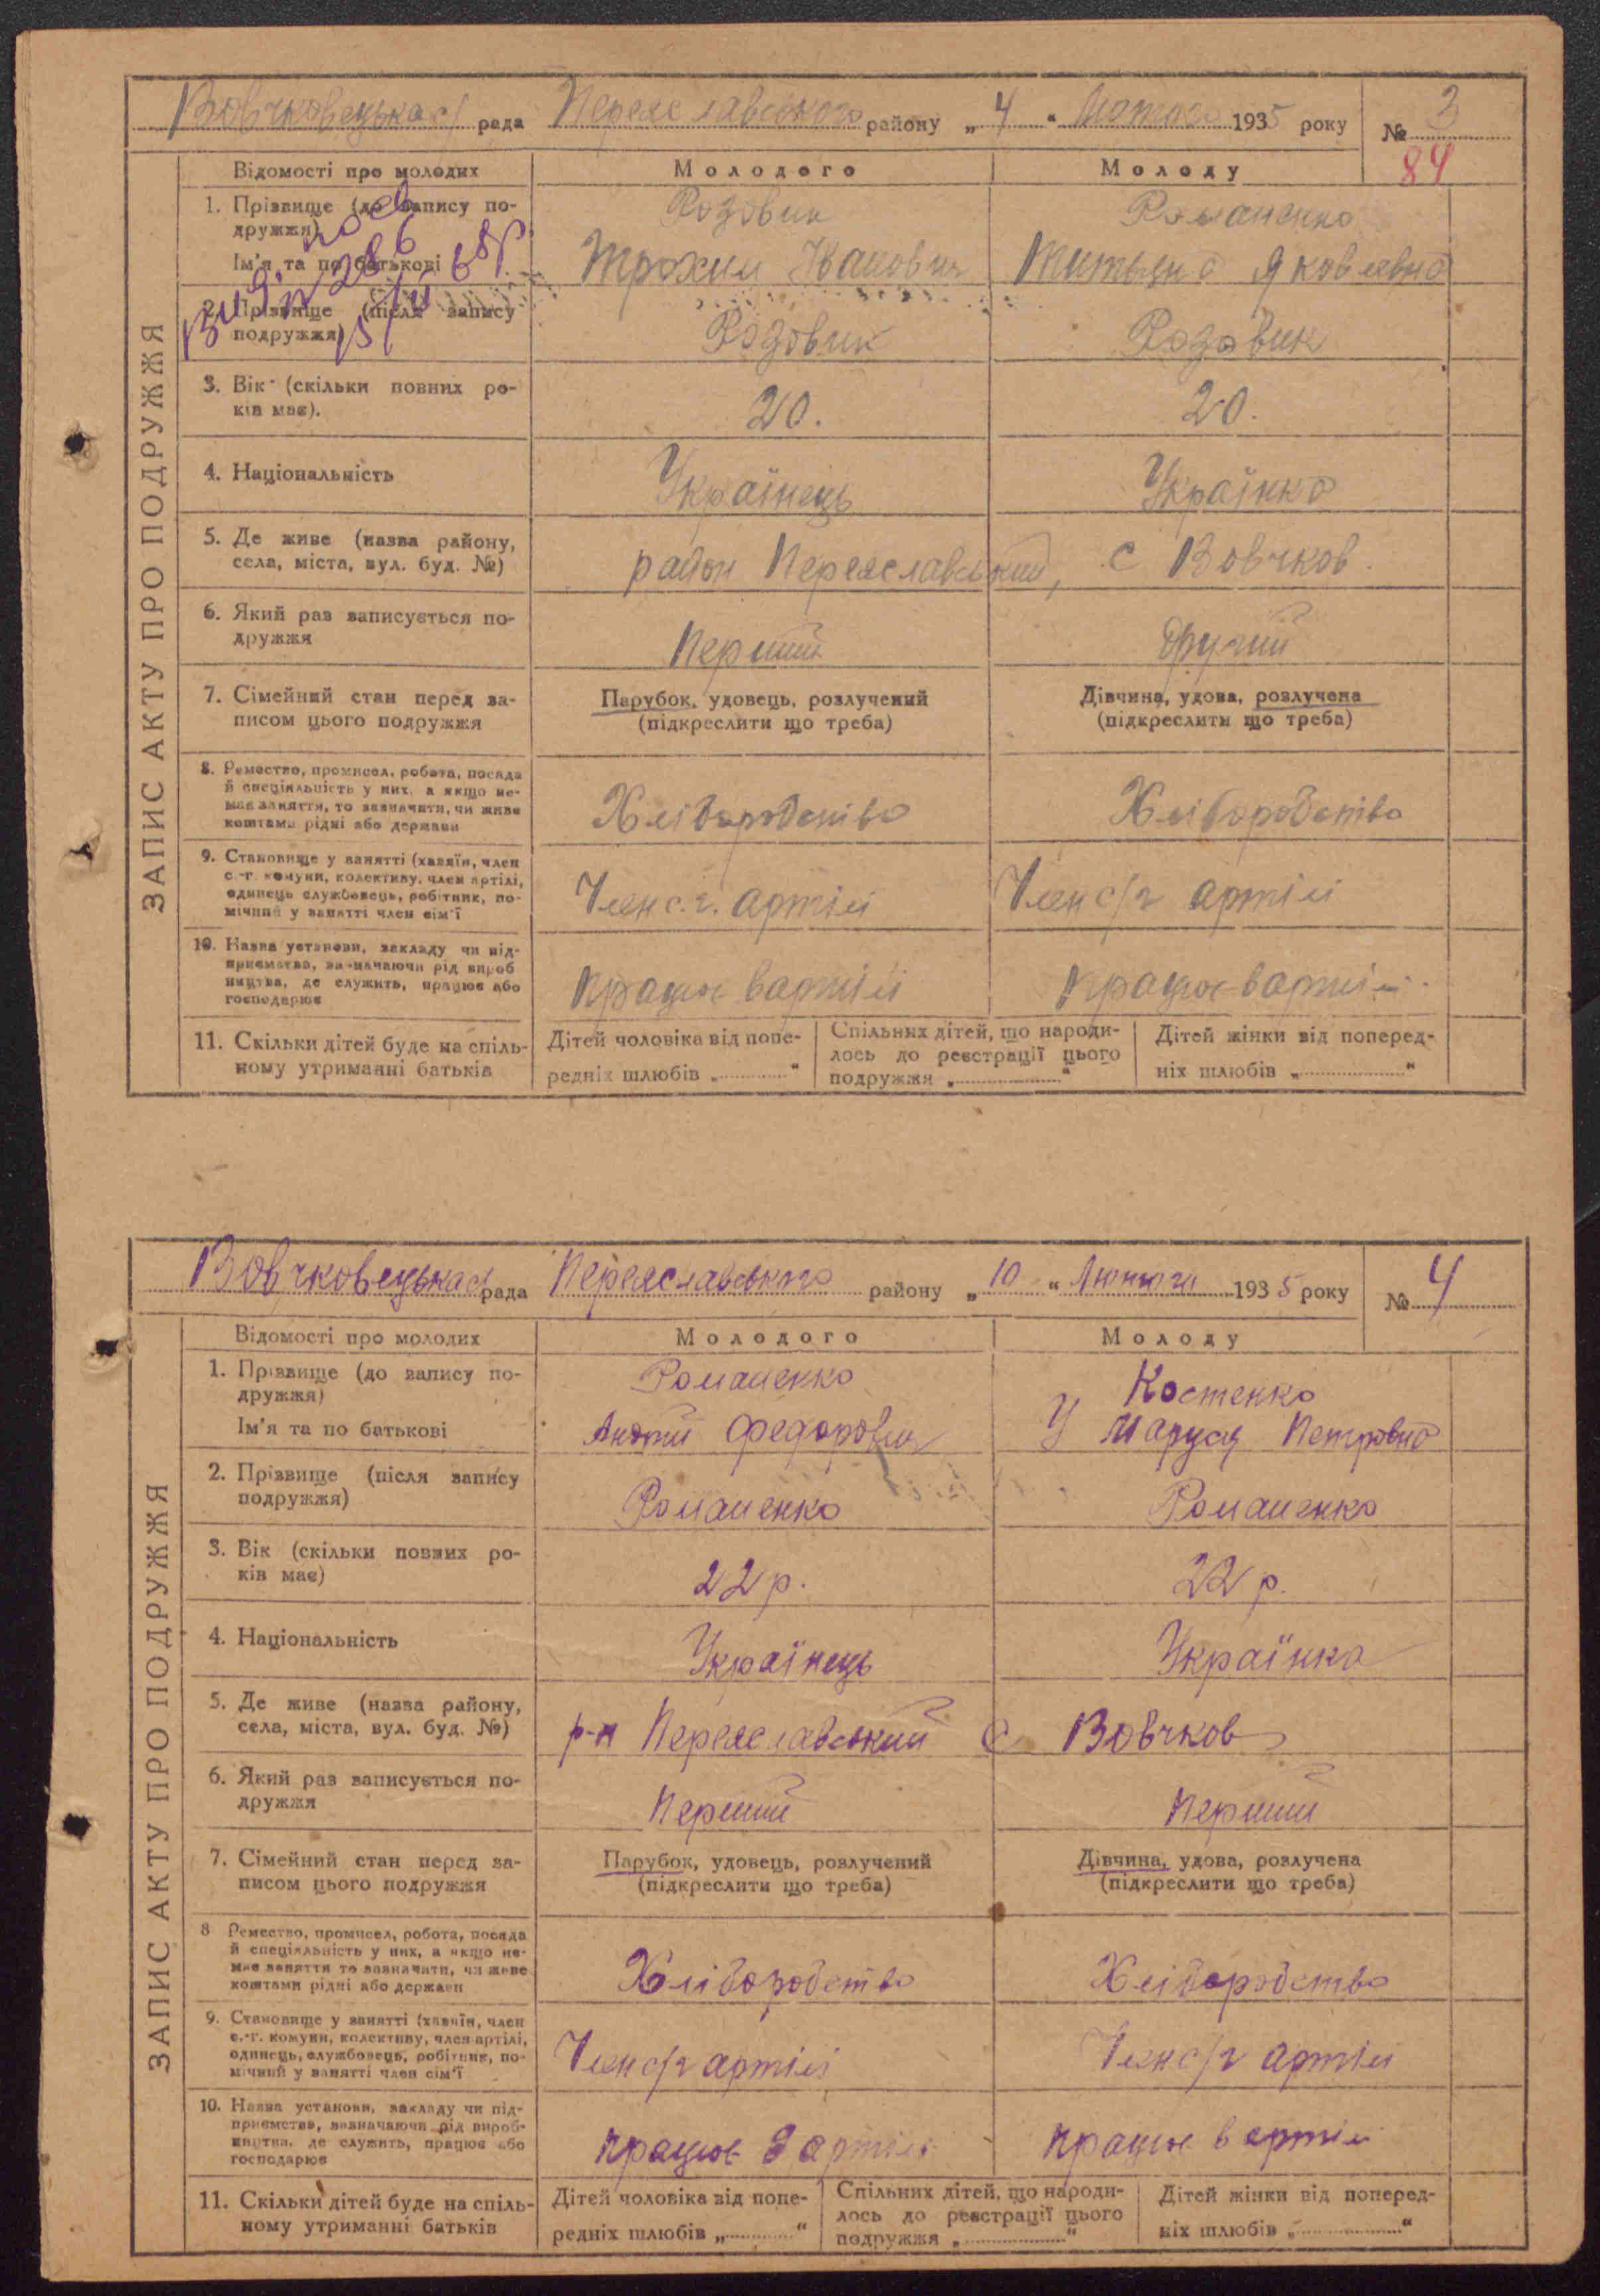 Вовчковецька с/рада Переяславського району „4“ Лютого 1935 року № 3
84
ЗАПИС АКТУ ПРО ПОДРУЖЖЯ
Відомості про молодих Молодого Молоду
1. Прізвище (до запису по- Розовик Романенко
дружжя)
Ім'я та по батькові Трохим Іванович Митьяна Яковлевна
2. Прізвище (після запису Розовик Розовик
подружжя)
3. Вік (скільки повних ро- 20. 20.
ків має).
4. Національність Українець Українка
5. Де живе (назва району, район Переяславський, с Вовчков.
села, міста, вул. буд. №)
6. Який раз записується по- Перший Другий
дружжя
7. Сімейний стан перед за- Парубок, удовець, розлучений Дівчина, удова, розлучена
писом цього подружжя (підкреслити що треба) (підкреслити що треба)
8. Ремество, промисел, робота, посада
й спеціяльність у них, а якщо не-
має заняття, то зазначити, чи живе Хліборобство Хліборобство
коштами рідні або держави
9. Становище у занятті (хазяїн, член
с.-г. комуни, колективу, член артілі, Член с.г. артілі Член с/г артілі
одинець службовець, робітник, по-
мічний у занятті член сім'ї
10. Назва установи, закладу чи під-
приємства, зазначаючи рід вироб
ництва, де служить, працює або працює вартілі працює вартілі
господарює
11. Скільки дітей буде на спіль- Дітей чоловіка від попе- Спільних дітей, що народи- Дітей жінки від поперед-
ному утриманні батьків редніх шлюбів „ “ лось до реєстрації цього ніх шлюбів „ “
подружжя „ “
Вовчковецька с/рада Переяславського району „10“ Лютого 1935 року № 4
ЗАПИС АКТУ ПРО ПОДРУЖЖЯ
Відомості про молодих Молодого Молоду
1. Прізвище (до запису по- Романенко Костенко
дружжя)
Ім'я та по батькові Андтій Федорович У Маруся Петровна
2. Прізвище (після запису Романенко Романенко
подружжя)
3. Вік (скільки повних ро- 22 р. 22 р.
ків має)
4. Національність Українець Українка
5. Де живе (назва району, р-н Переяславський с Вовчков
села, міста, вул. буд. №)
6. Який раз записується по- Перший Перший
дружжя
7. Сімейний стан перед за- Парубок, удовець, розлучений Дівчина, удова, розлучена
писом цього подружжя (підкреслити що треба) (підкреслити що треба)
8 Ремество, промисел, робота, посада
й спеціяльність у них, а якщо не-
має заняття то зазначити, чи живе Хліборобство Хліборобство
коштами рідні або держави
9. Становище у занятті (хазяїн, член
с.-г. комуни, колективу, член артілі, Член с/г артілі Член с/г артілі
одинець, службовець, робітник, по-
мічний у занятті член сім'ї
10. Назва установи, закладу чи під-
приємства, зазначаючи рід вироб-
ництва, де служить, працює або працює в артілі працює в артілі
господарює
11. Скільки дітей буде на спіль- Дітей чоловіка від попе- Спільних дітей, що народи- Дітей жінки від поперед-
ному утриманні батьків редніх шлюбів „ “ лось до реєстрації цього ніх шлюбів „ “
подружжя „ “